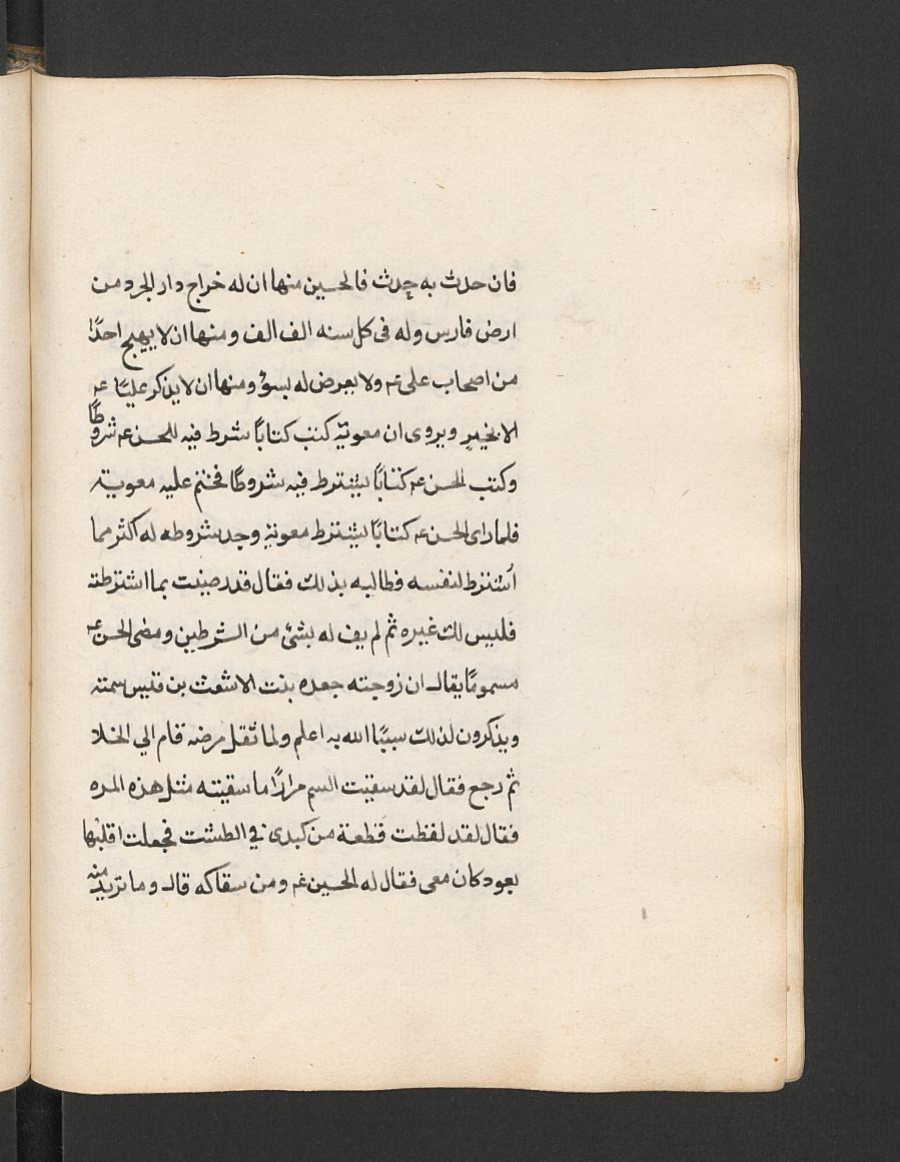 فان حدث به حدث فالحسين منها ان له خراج دار الجرد من
ارض فارس وله فى كل سنه الف الف ومنها ان لا يهيج احدًا
من اصحاب على عم ولا يعرض له بسوُ ومنها ان لا يذكر عليًا عم
الا بخير ويروى ان معوية كتب كتابًا شرط فيه للحسن عم شروطًا
وكتب الحسن عم كتابًا يشترط فيه شروطًا فختم عليه معوية
فلما راى الحسن عم كتابًا يشترط معوية وجد شروطه له اكثر مما
اشترط لنفسه فطالبه بذلك فقال قد رضيت بما اشترطته
فليس لك غيره ثم لم يف له بشئ من الشرطين ومضى الحسن عم
مسمومًا يقال ان زوجته جعده بنت الاشعث بن قليس سمته
ويذكرون لذلك سببًا الله به اعلم ولما ثقل مرضه قام الي الخلا
ثم رجع فقال لقد سقيت السم مرارًا ما سقيته مثل هذه المره
فقال لقد لفظت قطعة من كبدى في الطشت فجعلت اقلبها
بعود كان معى فقال له الحسين عم ومن سقاكه قال وما تريد منه